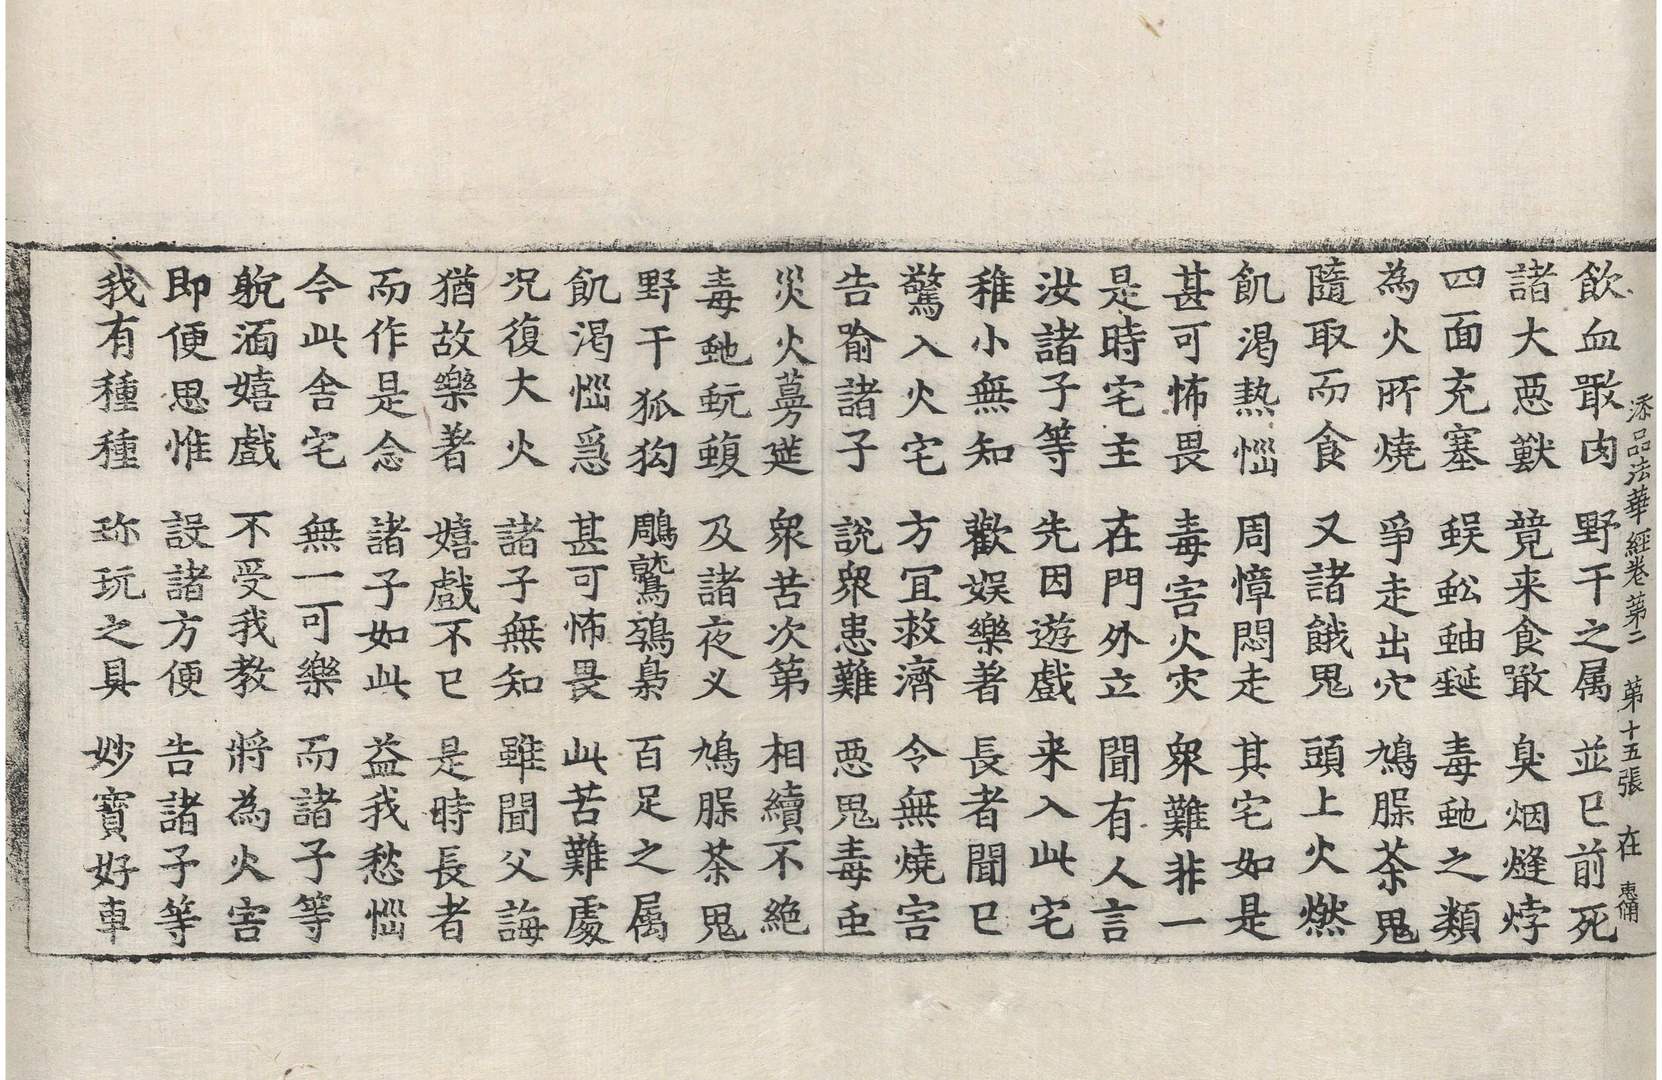 添品法華經卷第二　第十五張　在　惠備
飲血噉肉　野干之属　並已前死
諸大惡獸　競来食噉　臭烟熢㶿
四面充塞　蜈蚣蚰蜒　毒虵之類
為火所燒　爭走出穴　鳩脲茶鬼
隨取而食　又諸餓鬼　頭上火燃
飢渴热惱　周慞悶走　其宅如是
甚可怖畏　毒害火灾　衆難非一
是時宅主　在門外立　聞有人言
汝諸子等　先因遊戲　来入此宅
稚小無知　歡娱樂著　長者聞已
驚入火宅　方冝救濟　令無燒害
告喻諸子　說衆患難　惡鬼毒虫
災火蔓莚　衆苦次第　相續不絶
毒虵蚖蝮　及諸夜叉　鳩脲茶鬼
野干狐狗　鵰鷲鵄梟　百足之属
飢渴惱急　甚可怖畏　此苦難處
况復大火　諸子無知　雖聞父誨
猶故樂著　嬉戲不已　是時長者
而作是念　諸子如此　益我愁惱
今此舍宅　無一可樂　而諸子等
躭湎嬉戲　不受我教　將為火害
即便思惟　設諸方便　告諸子等
我有種種　珎玩之具　妙寳好車